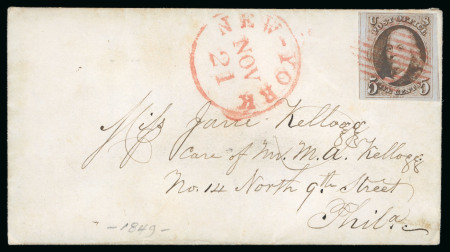 NEW-YORK
21
NOV
U S
POST OFFICE
FIVE CENTS
5 5
Miss Jane Kellogg
care of Mr. M. A. Kellogg
No. 14 North 9th Street
Phila
-1849-